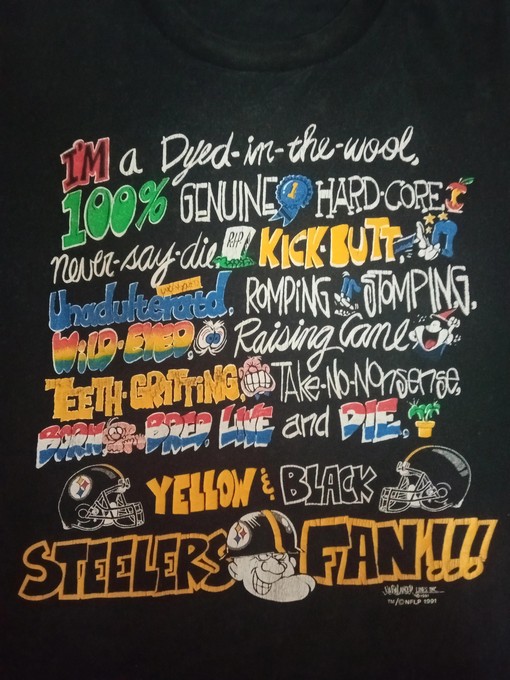 I'M a Dyed-in-the-wool,
100% GENUINE 1 HARD-CORE
never-say-die RIP KICK-BUTT,
Unadulterated, ROMPING STOMPING,
WILD-EYED, Raising Cane
TEETH-GRITTING, TAKE-NO-NONSENSE,
BORN BRED, LIVE and DIE,
YELLOW & BLACK
STEELERS FAN!!!
TM/© NFLP 1991